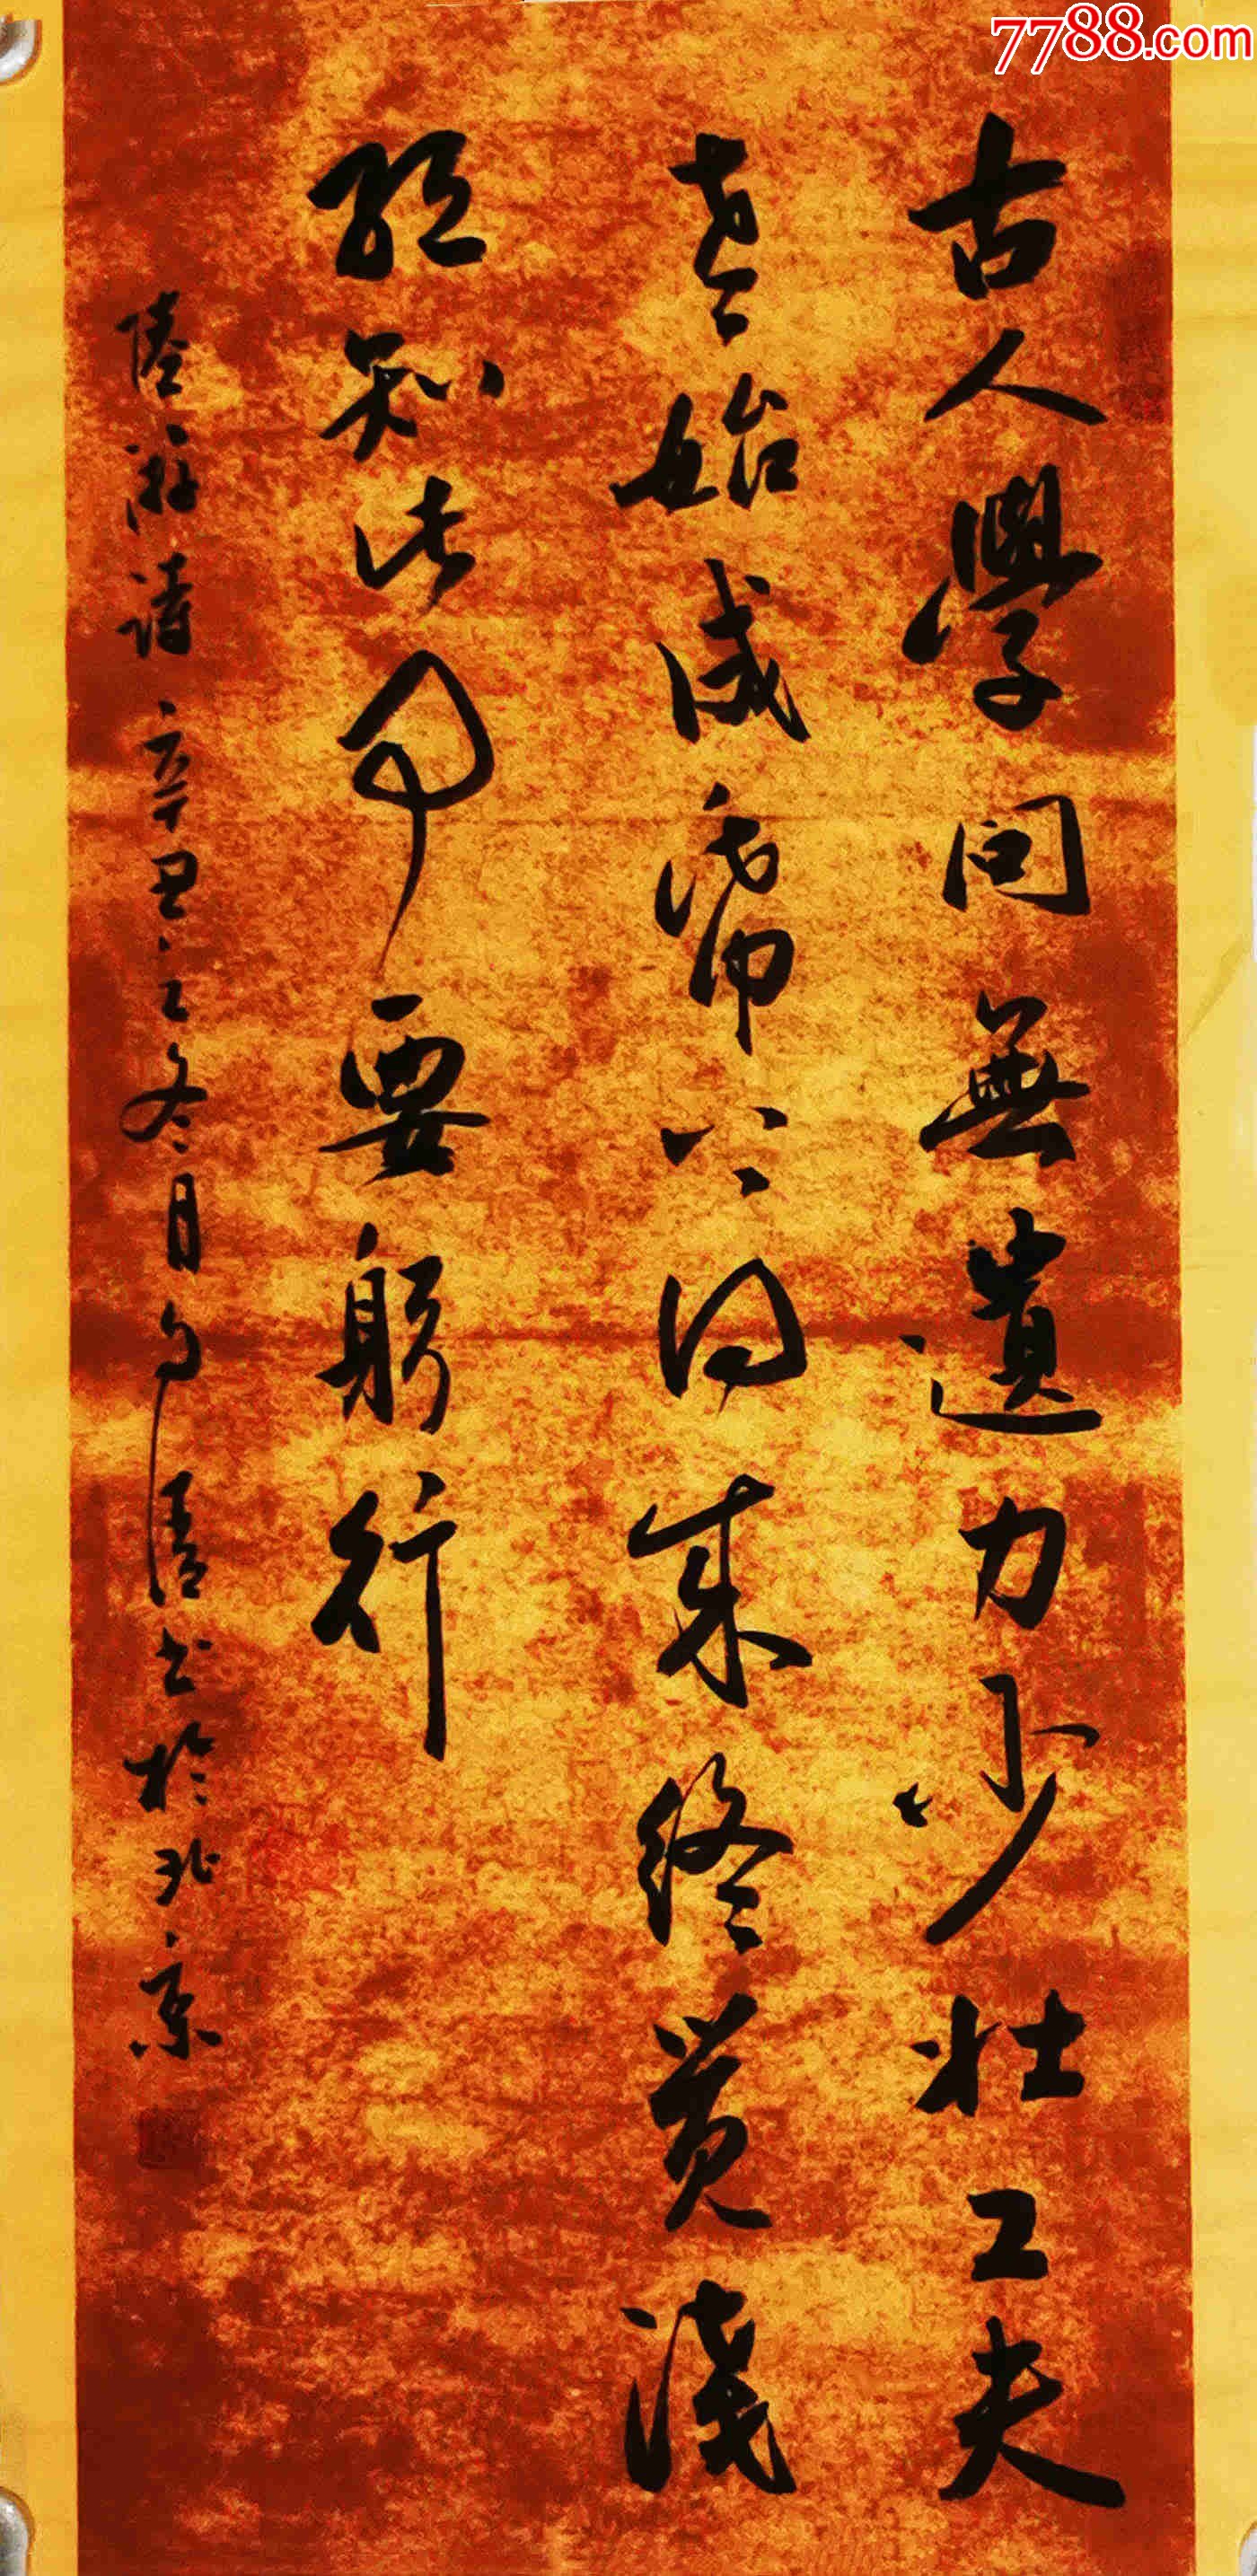 古人學問無遺力少壯工夫
老始成帋上得来終覺淺
絕知此事要躬行
陸游詩 辛丑之冬月 清书於北京
7788.com